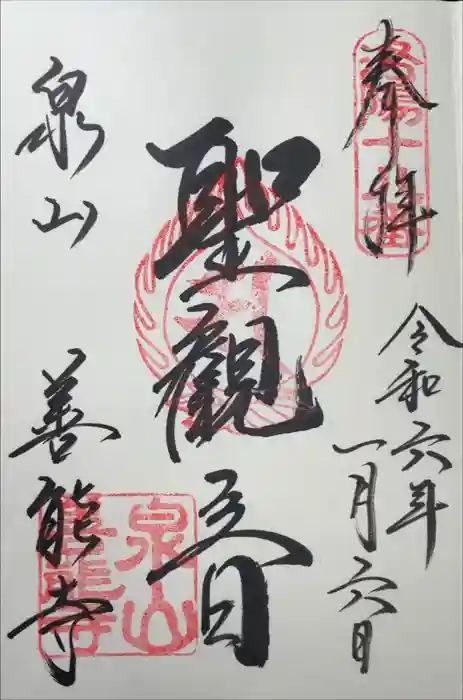 奉拝
令和六年
一月六日
聖觀音
泉山
善能寺
泉山
善能寺